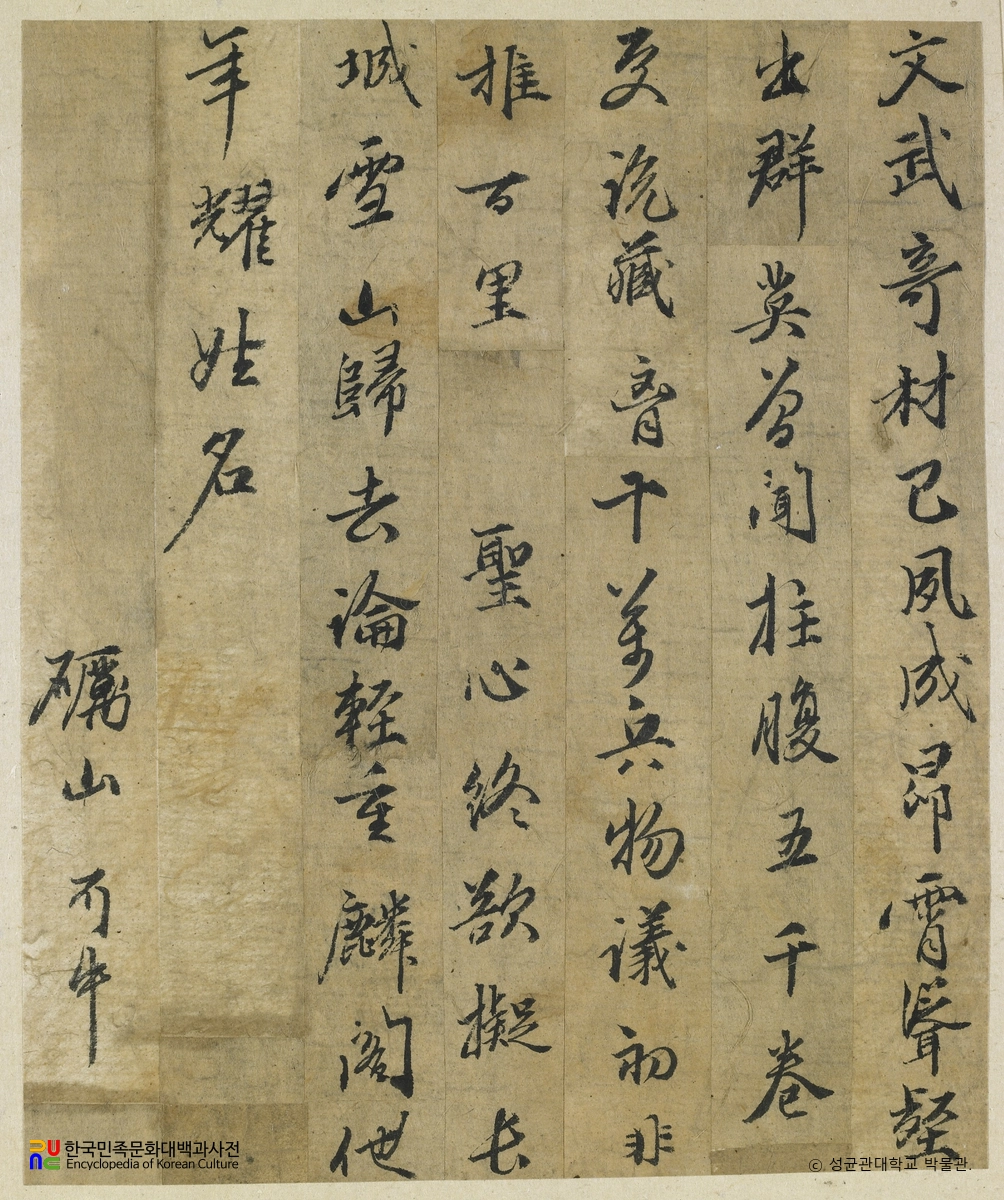 文武奇材已夙成昂霄聳壑
出群英曾聞拄腹五千卷
更說藏胷十萬兵物議初非
推百里 聖心終欲擬長
城雪山歸去論輕重麟閣他
年耀姓名
礪山
한국민족문화대백과사전
Encyclopedia of Korean Culture
ⓒ 성균관대학교 박물관.